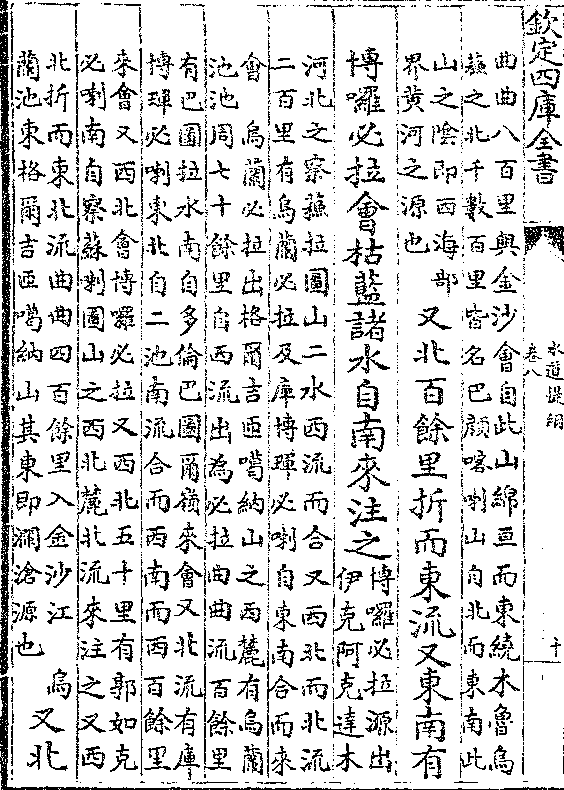 欽定四庫全書
水道提綱
卷八
十
曲曲八百里與金沙會自此山綿亘而東繞木魯烏
蘇之北千數百里皆名巴顔喀喇山自北而東南此
山之陰即西海部
界黄河之源也
又北百餘里折而東流又東南有
博囉必拉會枯藍諸水自南來注之
博囉必拉源出
伊克阿克達木
河北之察蘇拉圖山二水西流而合又西北而北流
二百里有烏蘭必拉及庫博琿必喇自東南合而來
會　烏蘭必拉出格爾吉匝噶納山之西麓有烏蘭
池池周七十餘里自西流出為必拉曲曲流百餘里
有巴圖拉水南自多倫巴圖爾嶺來會又北流有庫
博琿必喇東北自二池南流合而西南而西百餘里
來會又西北會博囉必拉又西北五十里有郭如克
必喇南自察蘇喇圖山之西北麓北流來注之又西
北折而東北流曲曲四百餘里入金沙江　烏
蘭池東格爾吉匝噶納山其東即瀾滄源也
又北